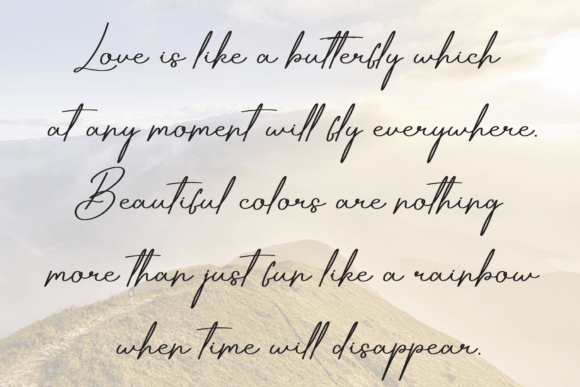 Love is like a butterfly which
at any moment will fly everywhere.
Beautiful colors are nothing
more than just fun like a rainbow
when time will disappear.